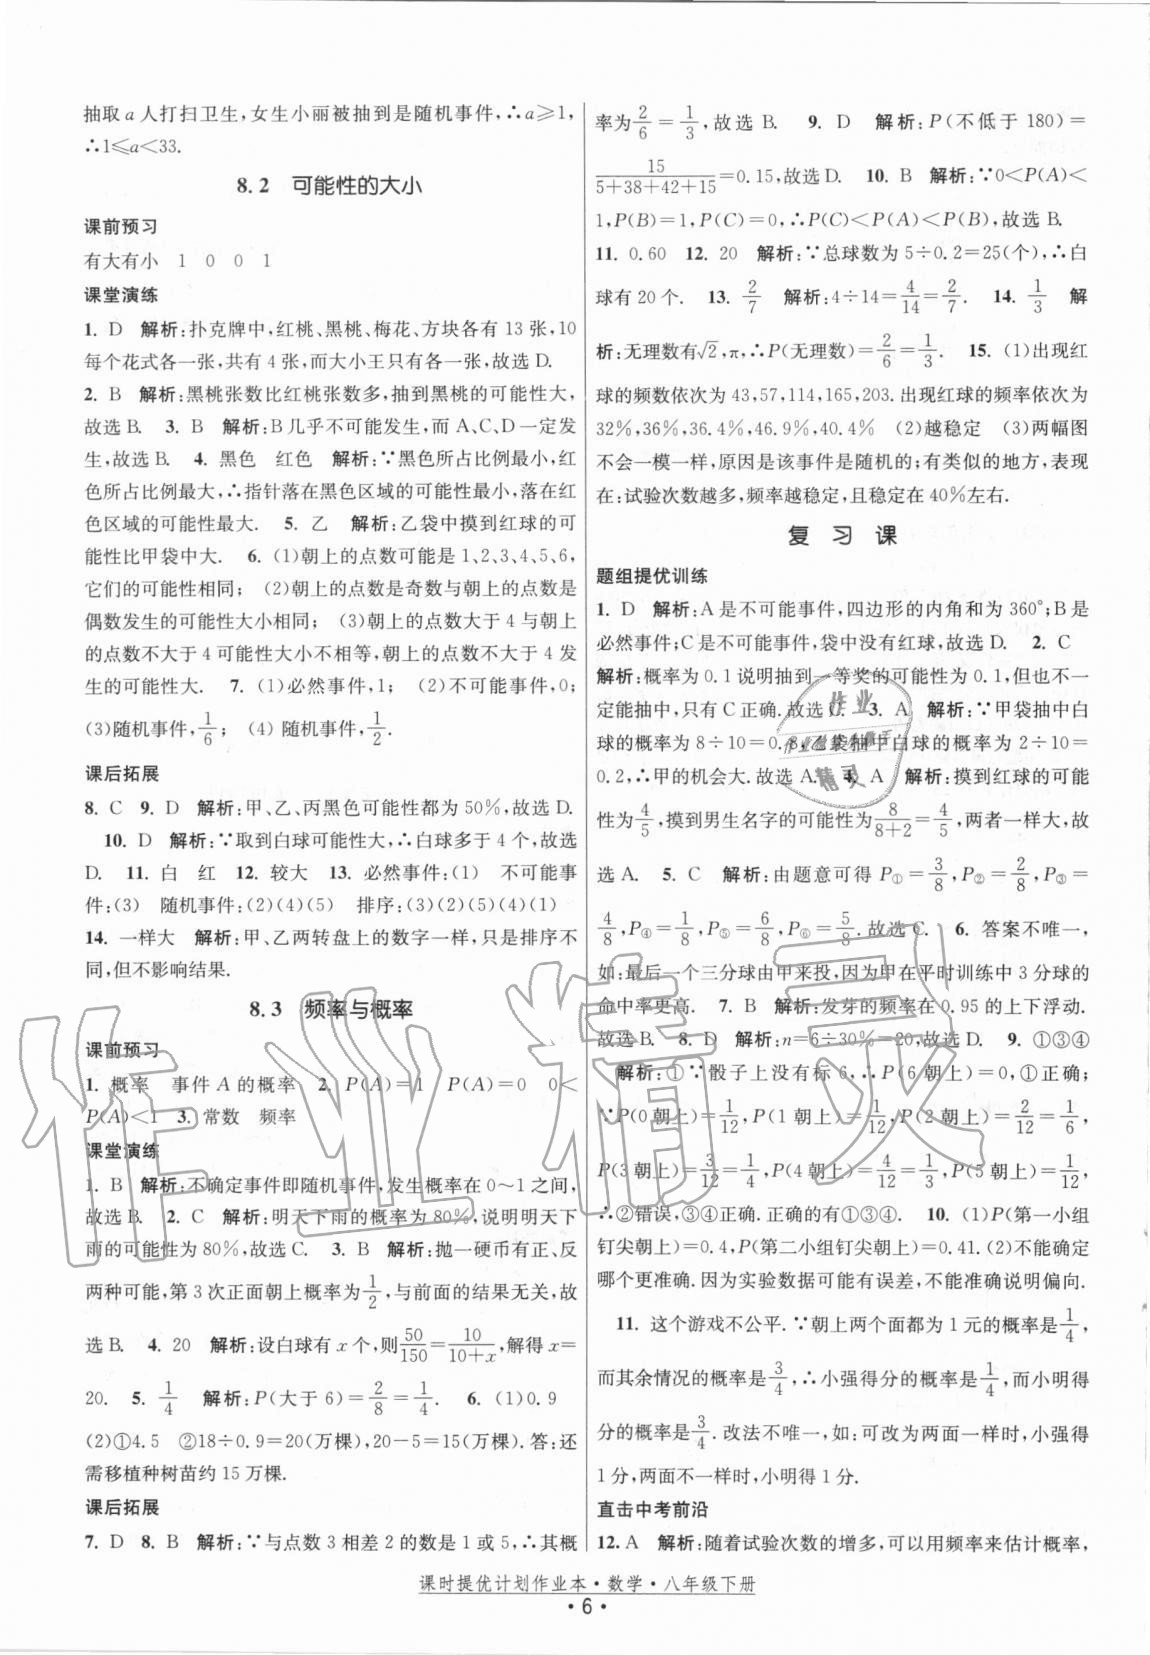 抽取a人打扫卫生,女生小丽被抽到是随机事件,∴a≥1,
∴1≤a<33.
8.2 可能性的大小
课前预习
有大有小 1 0 0 1
课堂演练
1. D 解析:扑克牌中,红桃、黑桃、梅花、方块各有13张,10
每个花式各一张,共有4张,而大小王只有各一张,故选D.
2. B 解析:黑桃张数比红桃张数多,抽到黑桃的可能性大,
故选B. 3. B 解析:B几乎不可能发生,而A、C、D一定发
生,故选B. 4. 黑色 红色 解析:∵黑色所占比例最小,红
色所占比例最大,∴指针落在黑色区域的可能性最小,落在红
色区域的可能性最大. 5. 乙 解析:乙袋中摸到红球的可
能性比甲袋中大. 6. (1)朝上的点数可能是1、2、3、4、5、6,
它们的可能性相同; (2)朝上的点数是奇数与朝上的点数是
偶数发生的可能性大小相同; (3)朝上的点数大于4与朝上
的点数不大于4可能性大小不相等,朝上的点数不大于4发
生的可能性大. 7. (1)必然事件,1; (2)不可能事件,0;
(3)随机事件,1/6; (4) 随机事件,1/2.
课后拓展
8. C 9. D 解析:甲、乙、丙黑色可能性都为50%,故选D.
10. D 解析:∵取到白球可能性大,∴白球多于4个,故选
D. 11. 白 红 12. 较大 13. 必然事件:(1) 不可能事
件:(3) 随机事件:(2)(4)(5) 排序:(3)(2)(5)(4)(1)
14. 一样大 解析:甲、乙两转盘上的数字一样,只是排序不
同,但不影响结果.
8.3 频率与概率
课前预习
1. 概率 事件A的概率 2. P(A)=1 P(A)=0 0<
P(A)<1 3. 常数 频率
课堂演练
1. B 解析:不确定事件即随机事件,发生概率在0~1之间,
故选B. 2. C 解析:明天下雨的概率为80%,说明明天下
雨的可能性为80%,故选C. 3. B 解析:抛一硬币有正、反
两种可能,第3次正面朝上概率为1/2,与前面的结果无关,故
选B. 4. 20 解析:设白球有x个,则50/150=10/(10+x),解得x=
20. 5. 1/4 解析:P(大于6)=2/8=1/4. 6. (1)0.9
(2)①4.5 ②18÷0.9=20(万棵),20-5=15(万棵).答:还
需移植种树苗约15万棵.
课后拓展
7. D 8. B 解析:∵与点数3相差2的数是1或5,∴其概
率为2/6=1/3,故选B. 9. D 解析:P(不低于180)=
15/(5+38+42+15)=0.15,故选D. 10. B 解析:∵0<P(A)<
1,P(B)=1,P(C)=0,∴P(C)<P(A)<P(B),故选B.
11. 0.60 12. 20 解析:∵总球数为5÷0.2=25(个),∴白
球有20个. 13. 2/7 解析:4÷14=4/14=2/7. 14. 1/3 解
析:无理数有√2,π,∴P(无理数)=2/6=1/3. 15. (1)出现红
球的频数依次为43,57,114,165,203.出现红球的频率依次为
32%,36%,36.4%,46.9%,40.4% (2)越稳定 (3)两幅图
不会一模一样,原因是该事件是随机的;有类似的地方,表现
在:试验次数越多,频率越稳定,且稳定在40%左右.
复习课
题组提优训练
1. D 解析:A是不可能事件,四边形的内角和为360°;B是
必然事件;C是不可能事件,袋中没有红球,故选D. 2. C
解析:概率为0.1说明抽到一等奖的可能性为0.1,但也不一
定能抽中,只有C正确.故选C. 3. A 解析:∵甲袋抽中白
球的概率为8÷10=0.8,乙袋抽中白球的概率为2÷10=
0.2,∴甲的机会大.故选A. 4. A 解析:摸到红球的可能
性为4/5,摸到男生名字的可能性为8/(8+2)=4/5,两者一样大,故
选A. 5. C 解析:由题意可得P①=3/8,P②=2/8,P③=
4/8,P④=1/8,P⑤=6/8,P⑥=5/8.故选C. 6. 答案不唯一,
如:最后一个三分球由甲来投,因为甲在平时训练中3分球的
命中率更高. 7. B 解析:发芽的频率在0.95的上下浮动.
故选B. 8. D 解析:n=6÷30%=20,故选D. 9. ①③④
解析:①∵骰子上没有标6,∴P(6朝上)=0,①正确;
∵P(0朝上)=1/12,P(1朝上)=1/12,P(2朝上)=2/12=1/6,
P(3朝上)=3/12=1/4,P(4朝上)=4/12=1/3,P(5朝上)=1/12,
∴②错误,③④正确.正确的有①③④. 10. (1)P(第一小组
钉尖朝上)=0.4,P(第二小组钉尖朝上)=0.41.(2)不能确定
哪个更准确.因为实验数据可能有误差,不能准确说明偏向.
11. 这个游戏不公平.∵朝上两个面都为1元的概率是1/4,
而其余情况的概率是3/4,∴小强得分的概率是1/4,而小明得
分的概率是3/4.改法不唯一.如:可改为两面一样时,小强得
1分,两面不一样时,小明得1分.
直击中考前沿
12. A 解析:随着试验次数的增多,可以用频率来估计概率,
课时提优计划作业本·数学·八年级下册
·6·
作业精灵
作业
作业检查小助手
精灵